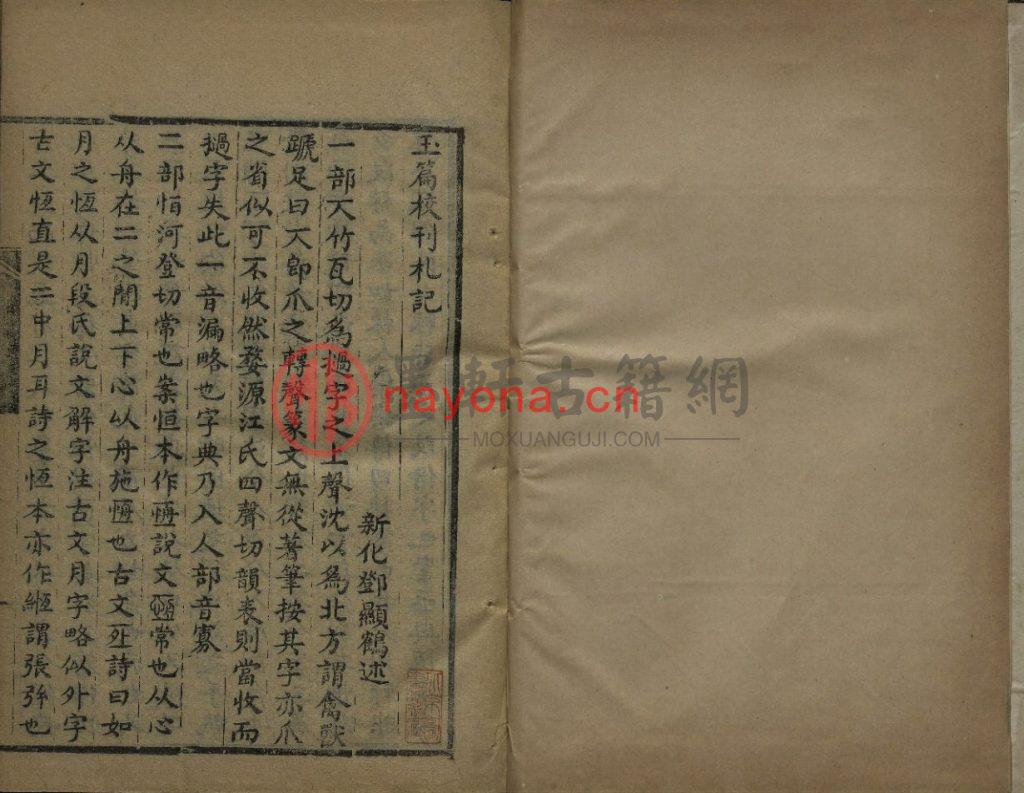 玉篇校刊札記
新化鄧顯鶴述
一部 竹瓦切爲撾字之上聲沈以爲北方謂禽獸
蹏足曰 卽爪之轉聲篆文無從著筆按其字亦爪
之省似可不收然婺源江氏四聲切韻表則當收而
撾字失此一音漏略也字典乃入人部音寡
二部恒河登切常也案恒本作恆說文 常也从心
从舟在二之閒上下心以舟施恆也古文 詩曰如
月之恆从月段氏說文解字注古文月字略似外字
古文恆直是二中月耳詩之恆本亦作緪謂張弦也
墨軒古籍網
nayona.cn
MOXUANGUJI.COM